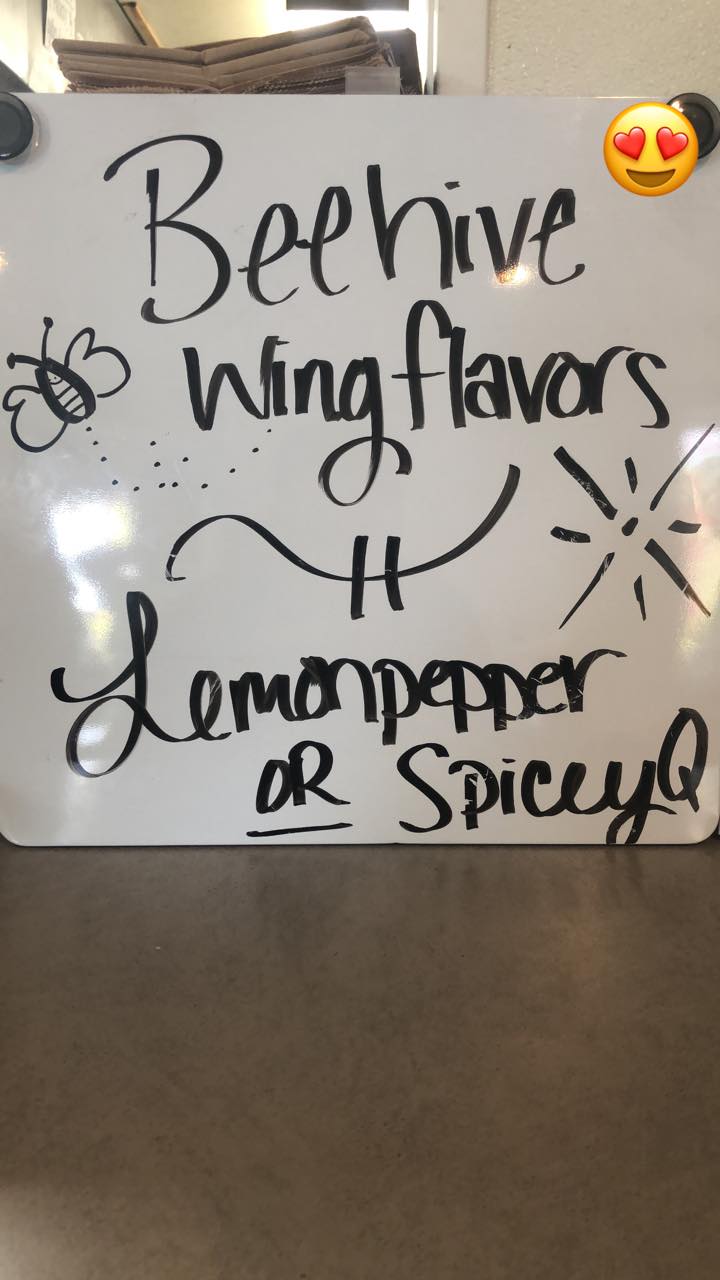 Beehive
Wing flavors
Lemonpepper
OR SpiceyQ